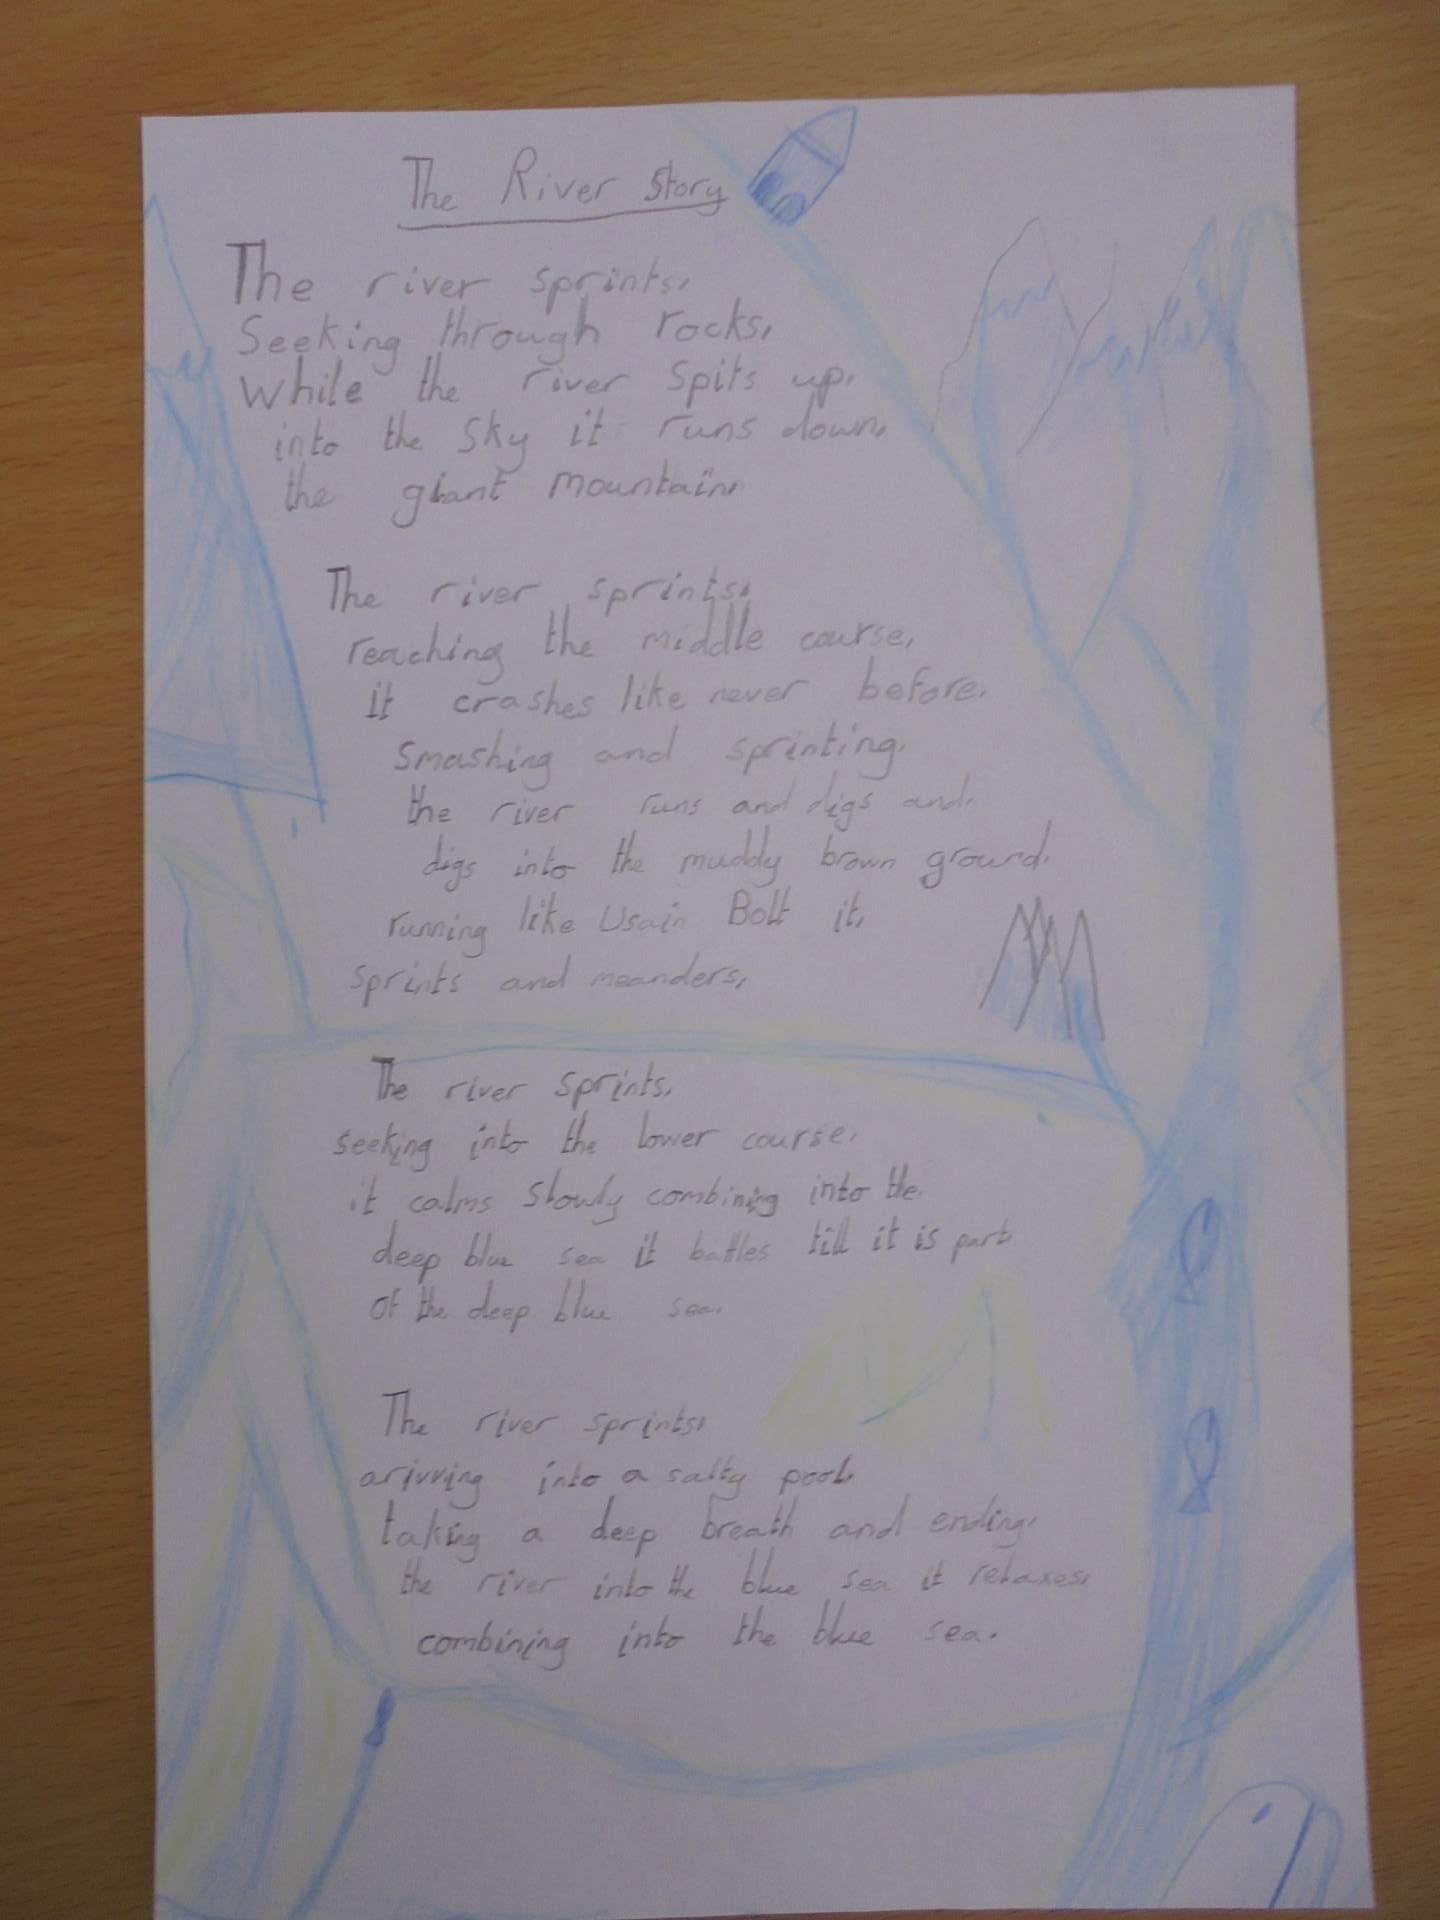 The River Story
The river sprints,
Seeking through rocks,
while the river spits up,
into the sky it runs down,
the giant mountain,
The river sprints,
reaching the middle course,
it crashes like never before.
smashing and sprinting,
the river runs and digs and,
digs into the muddy brown ground.
running like Usain Bolt it,
sprints and meanders,
The river sprints,
seeking into the lower course,
it calms slowly combining into the
deep blue sea it battles till it is part
of the deep blue sea.
The river sprints,
arivving into a salty pool,
taking a deep breath and ending,
the river into the blue sea it relaxes,
combining into the blue sea.